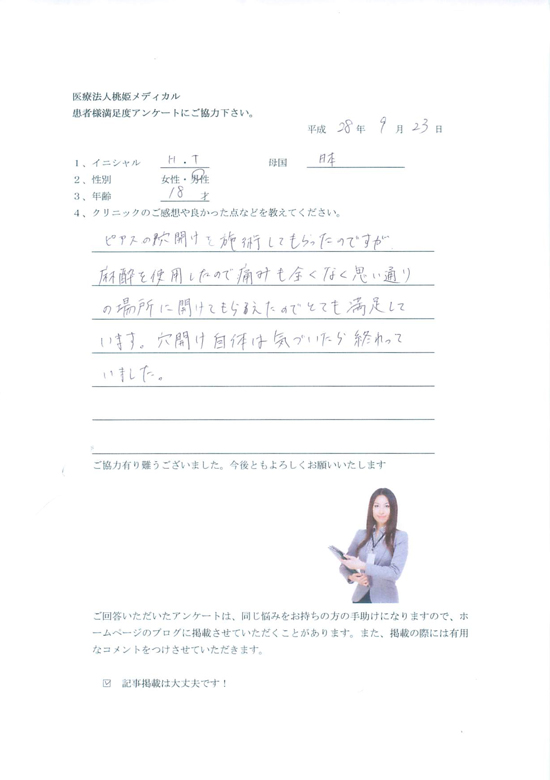 医療法人桃姫メディカル
患者様満足度アンケートにご協力下さい。
平成 28 年 9 月 23 日
1、イニシャル H.T 母国 日本
2、性別 女性・男性
3、年齢 18 才
4、クリニックのご感想や良かった点などを教えてください。
ピアスの穴開けを施術してもらったのですが
麻酔を使用したので痛みも全くなく思い通り
の場所に開けてもらえたのでとても満足して
います。穴開け自体は気づいたら終わって
いました。
ご協力有り難うございました。今後ともよろしくお願いいたします
ご回答いただいたアンケートは、同じ悩みをお持ちの方の手助けになりますので、ホ
ームページのブログに掲載させていただくことがあります。また、掲載の際には有用
なコメントをつけさせていただきます。
☑ 記事掲載は大丈夫です！